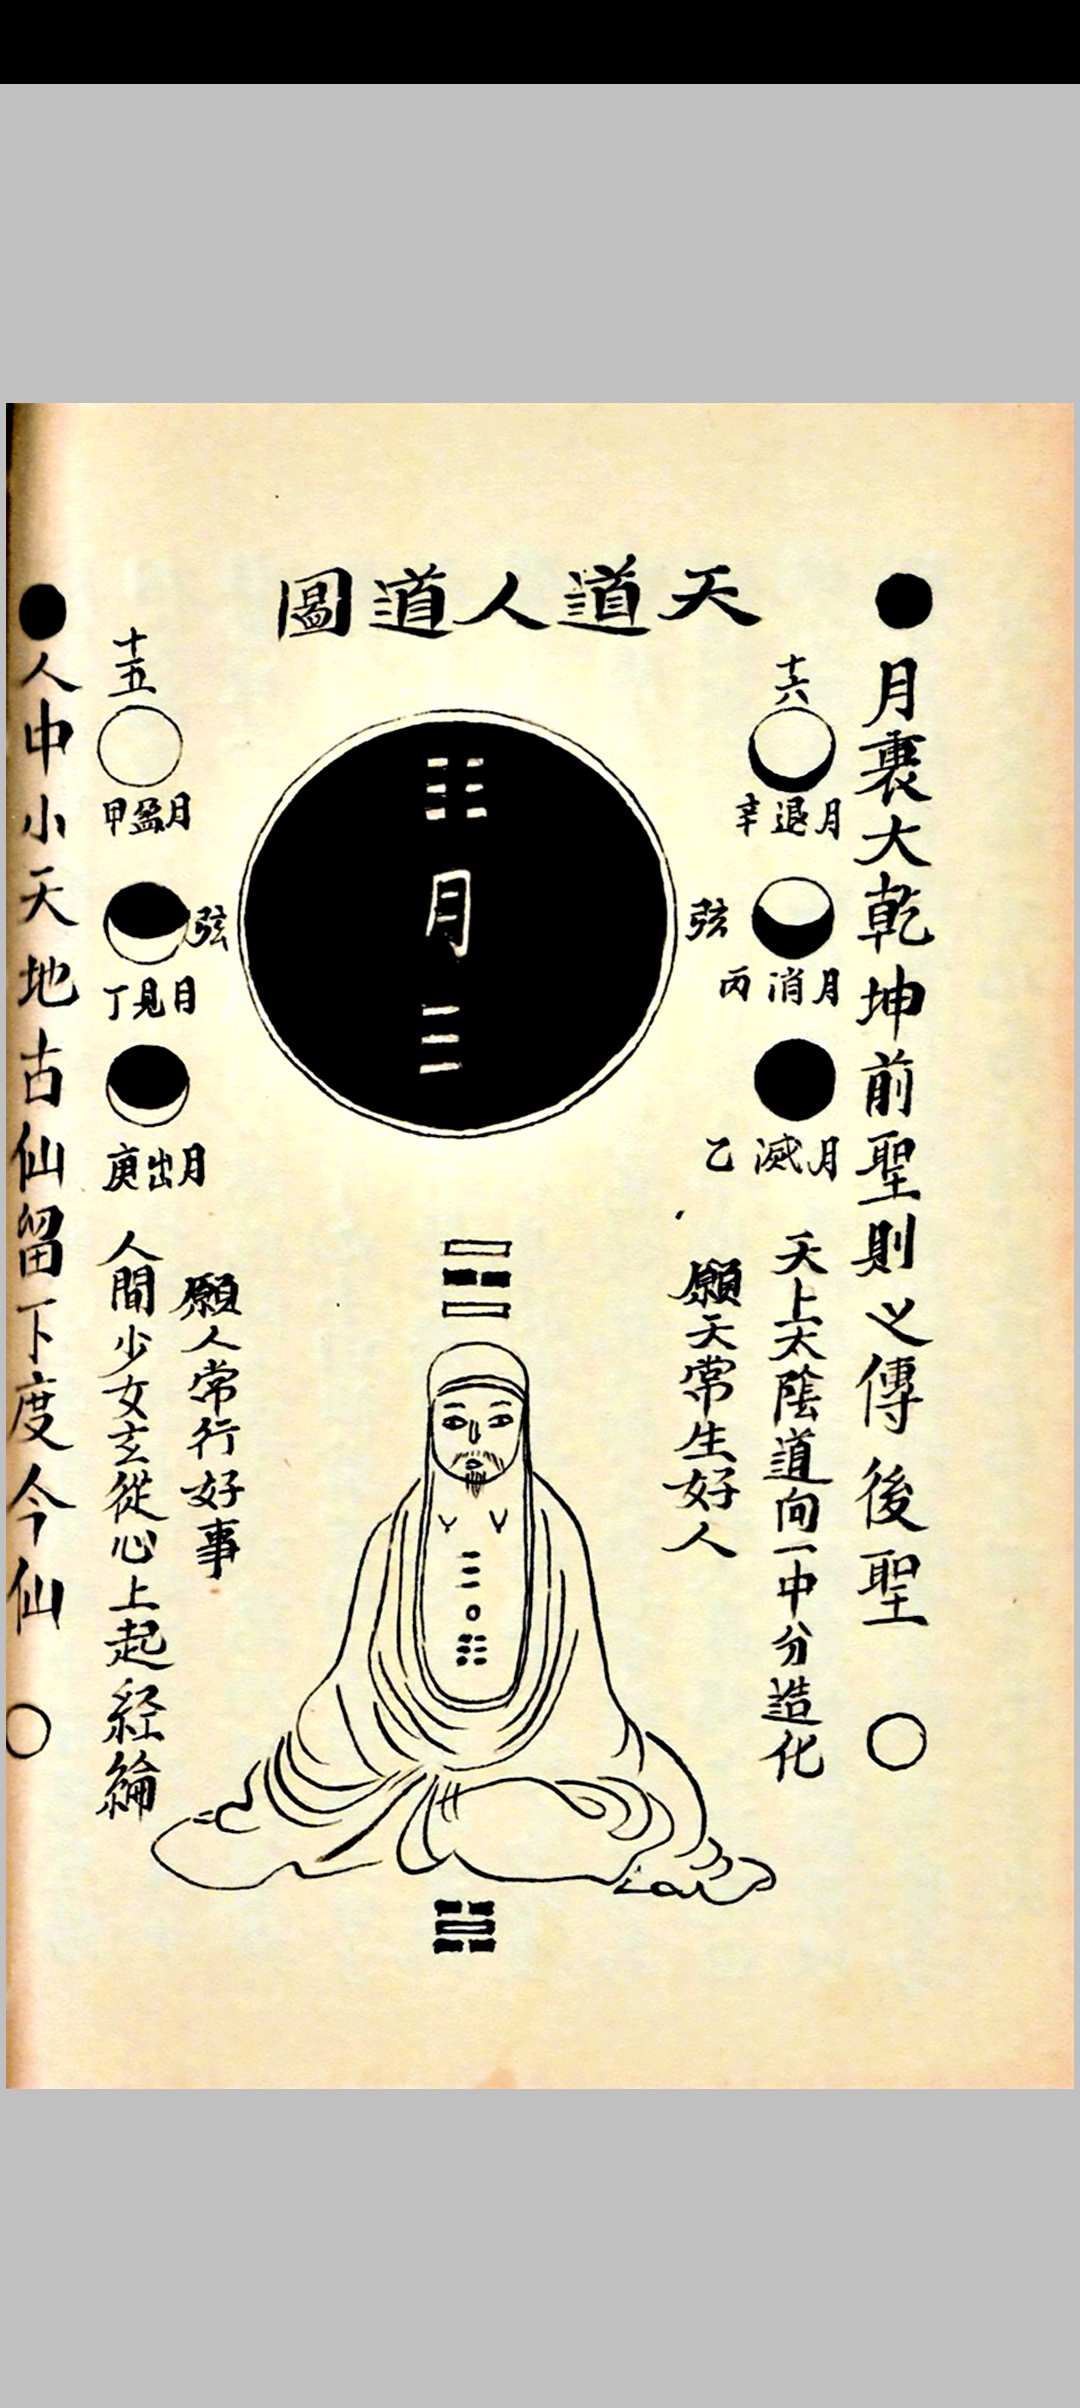 天道人道圖
月裏大乾坤前聖則之傳後聖
十六
月退辛
弦
月消丙
月滅乙
天上太陰道向一中分造化
願天常生好人
月
十五
月盈甲
弦
月見丁
月出庚
願人常行好事
人間少女玄從心上起經綸
人中小天地古仙留下度今仙